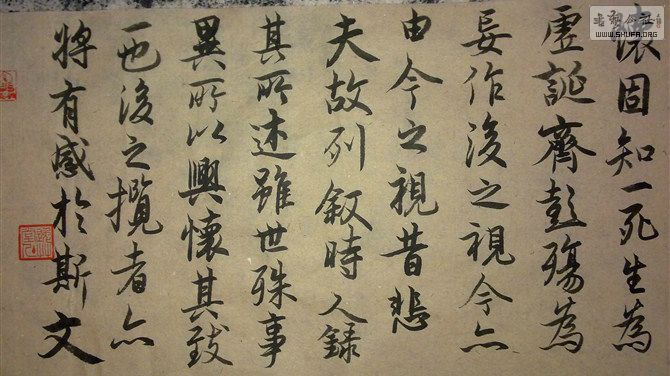 懷固知一死生為
虛誕齊彭殤為
妄作後之視今亦
由今之視昔悲
夫故列叙時人録
其所述雖世殊事
異所以興懷其致
一也後之攬者亦
將有感於斯文
WWW.SHUFA.ORG